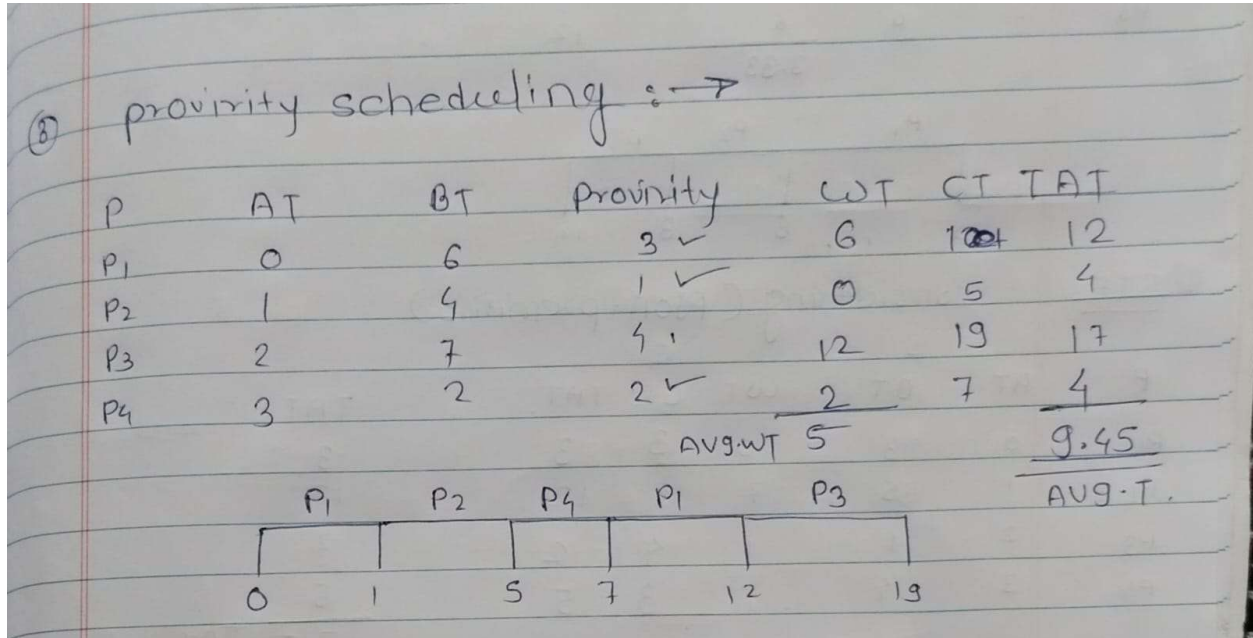 ③ provirity scheduling :→
P AT BT Provirity WT CT TAT
P1 0 6 3 ✓ 6 12
P2 1 4 1 ✓ 0 5 4
P3 2 7 4 12 19 17
P4 3 2 2 ✓ 2 7 4
AVg.WT 5 9.45
AUg.T.
P1 P2 P4 P1 P3
0 1 5 7 12 19